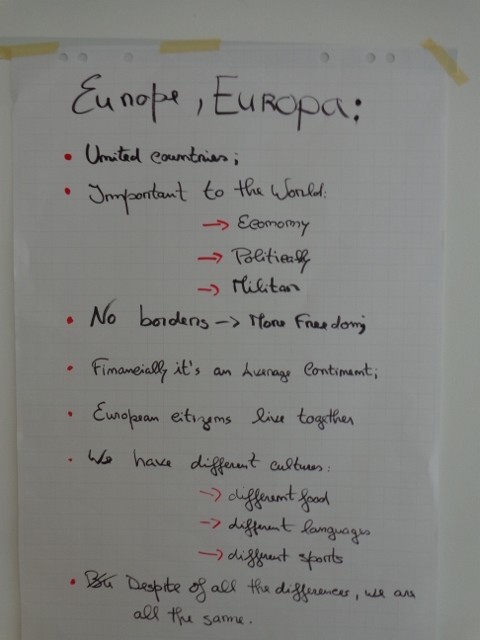 Europe, Europa:
• United countries;
• Important to the World:
→ Economy
→ Politically
→ Militar
• No borders → More Freedom;
• Financially it's an Average Continent;
• European citizens live together
• We have different cultures:
→ different food
→ different languages
→ different sports
• Despite of all the differences, we are
all the same.